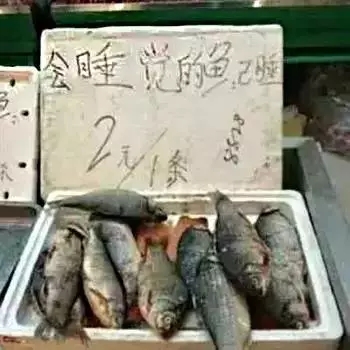 会睡觉的鱼.已睡
2元/1条
鱼.
条